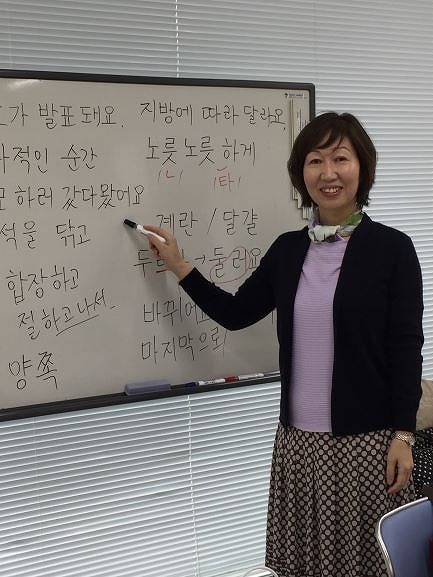 가 발표돼요. 지방에 따라 달라요.
적인 순간
노릇노릇하게
[ㄴ] [타]
하러 갔다왔어요
석을 닦고
계란 / 달걀
합장하고
절하고나서
둘러요
바뀌어요
마지막으로
양쪽